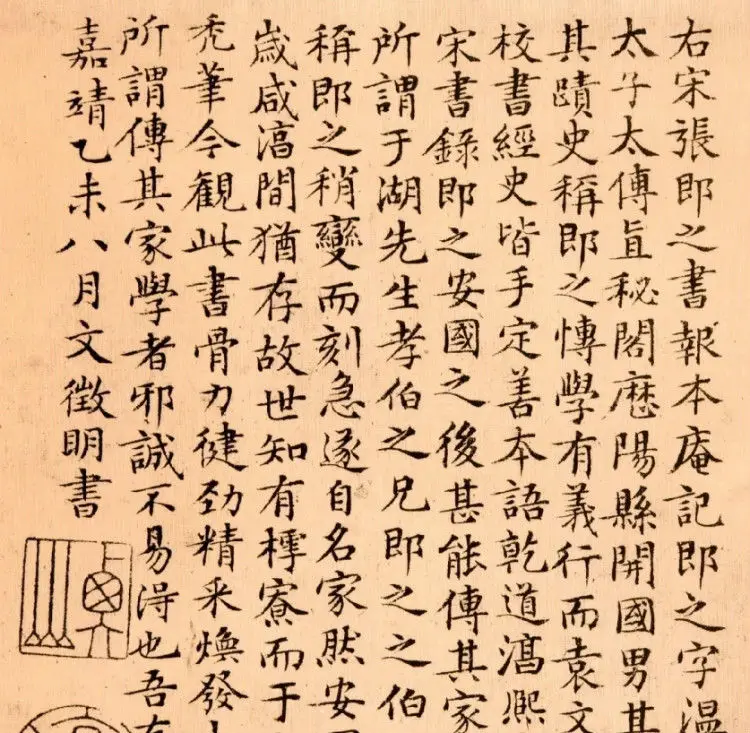 右宋張即之書報本庵記即之字温
太子太傅直秘閣歷陽縣開國男其
其蹟史稱即之博學有義行而袁文
校書經史皆手定善本語乾道淳熙
宋書錄即之安國之後甚能傳其家
所謂于湖先生孝伯之兄即之之伯
稱即之稍變而刻急遂自名家然安
歲咸淳間猶存故世知有樗寮而于
禿筆今觀此書骨力健勁精采煥發
所謂傳其家學者邪誠不易得也吾
嘉靖乙未八月文徵明書